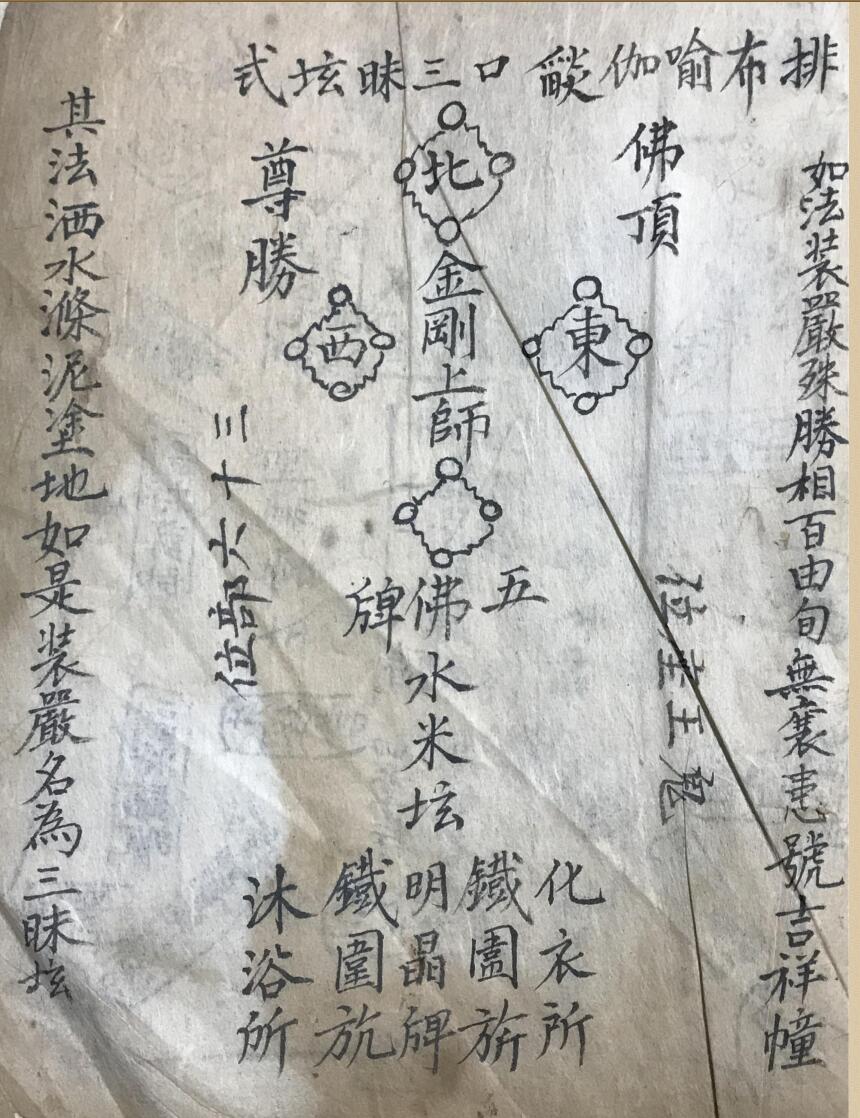 排布喻伽燄口三昧坛式
如法装嚴殊勝相百由旬無裏恚號吉祥幢
佛頂
尊勝
北
東
西
金剛上師
五佛牌
水米坛
鬼王主位
三十六部位
化衣所
鐵圍旂
明晶牌
鐵圍旂
沐浴所
其法洒水滌泥塗地如是装嚴名為三昧坛